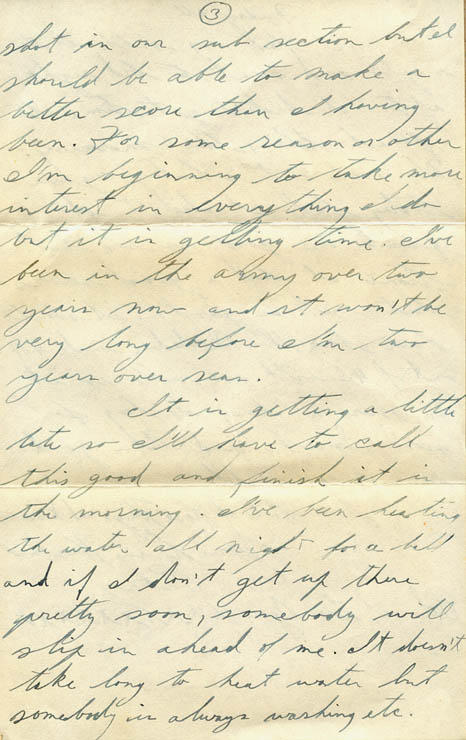 3
shot in our sub section but I
should be able to make a
better score than I having
been. For some reason or other
I'm beginning to take more
interest in everything I do
but it is getting time. I've
been in the army over two
years now and it won't be
very long before I'm two
years over seas.
It is getting a little
late so I'll have to call
this good and finish it in
the morning. I've been heating
the water all night for a
and if I don't get up there
pretty soon, somebody will
slip in ahead of me. It doesn't
take long to heat water but
somebody is always washing etc.